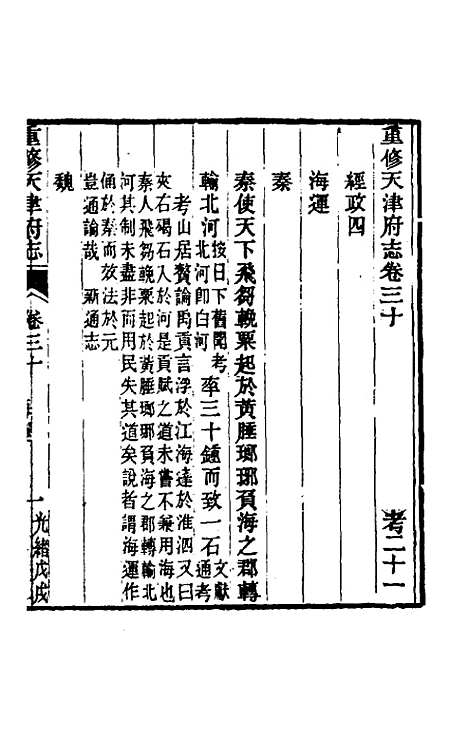 重修天津府志卷三十 考二十一
經政四
海運
秦
秦使天下飛芻輓粟起於黃腄瑯琊負海之郡轉
輸北河按日下舊聞考北河卽白河率三十鍾而致一石文獻通考
考山居贅論禹貢言浮於江海達於淮泗又曰
夾右碣石入於河是貢賦之道未嘗不兼用海也
秦人飛芻輓粟起於黃腄瑯琊負海之郡轉輸北
河其制未盡非而用民失其道矣說者謂海運作
俑於秦而效法於元
豈通論哉 新通志
魏
重修天津府志
卷三十
一
光緒戊戌